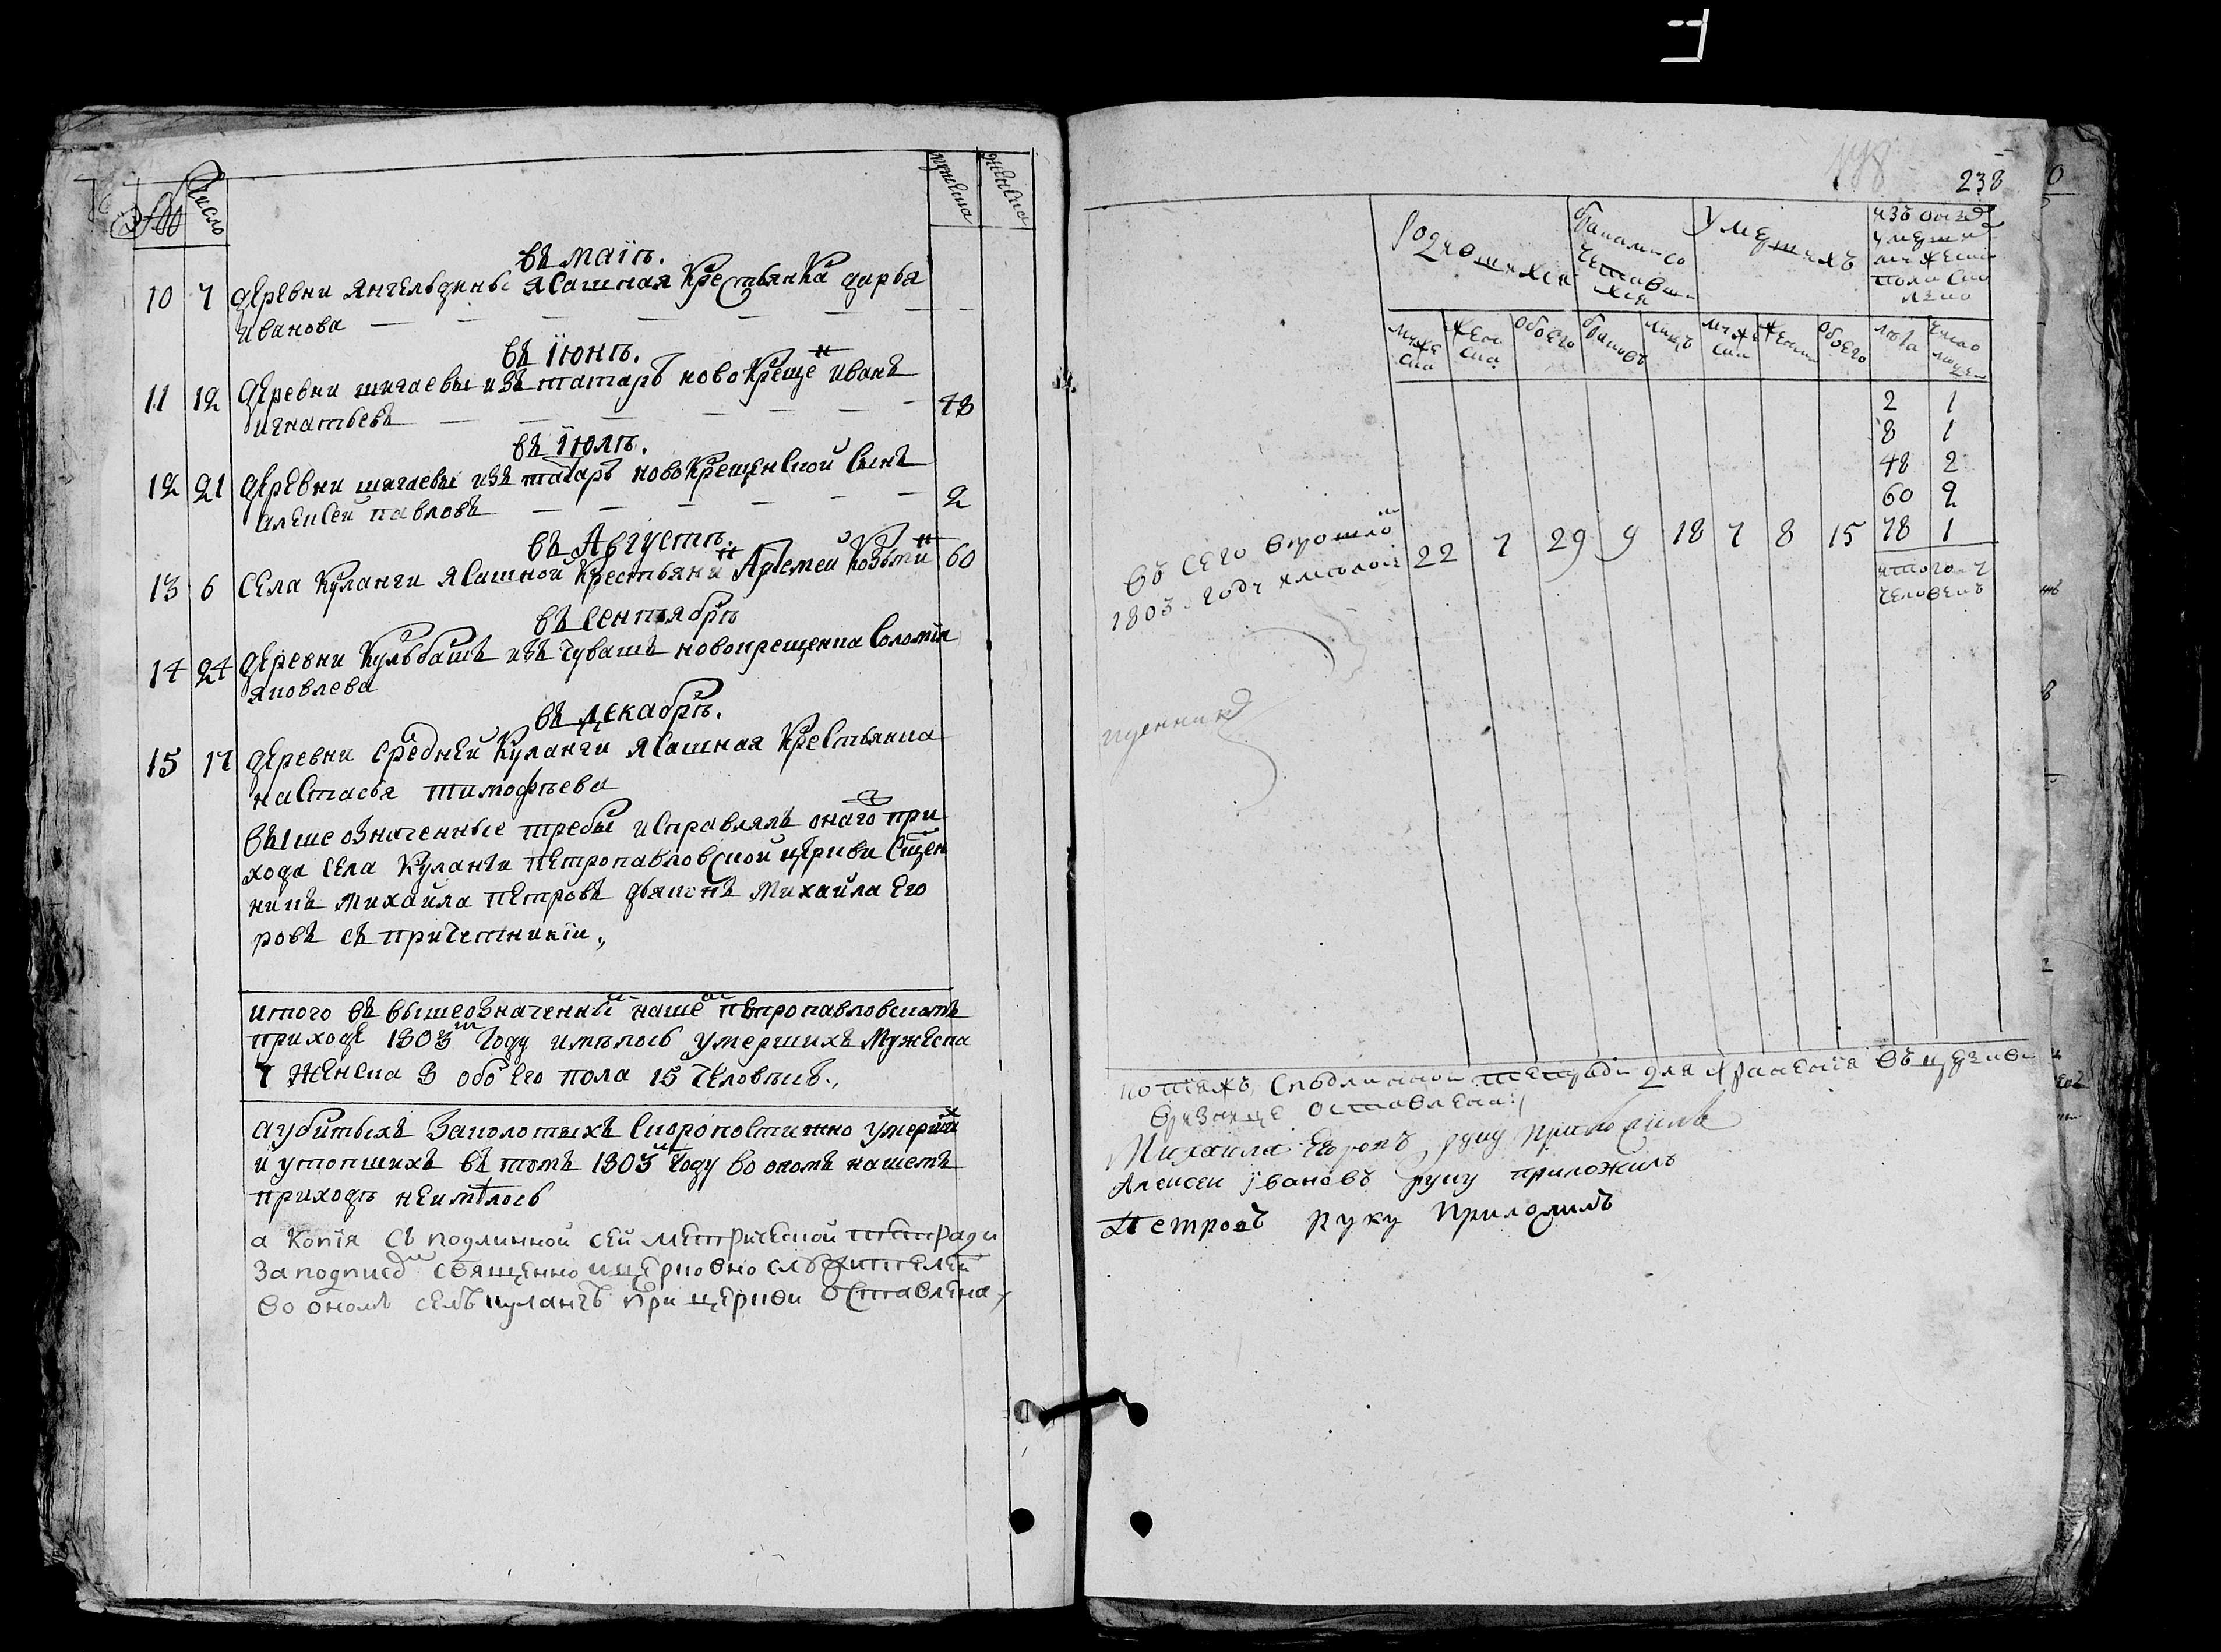 № число мужеска женска
въ маїѣ.
10 7 деревни янгельдины ясашная крестьянка дарья
иванова
въ іюнѣ.
11 12 деревни шигаевы изъ татаръ новокреще н иванъ
игнатьевъ 48
въ іюлѣ.
12 21 деревни шигаевы изъ татаръ новокрещенской сынъ
алексей павловъ 2
въ Августѣ.
13 6 села Куланги ясашной крестьяни н Артемей козьми н 60
въ сентябрѣ
14 24 деревни кульбашъ изъ чувашъ новокрещенка соломія
яковлева
въ декабрѣ.
15 17 деревни средней Куланги ясашная крестьянка
настасья тимофѣева
вышеозначенные требы исправлялъ онаго при
хода села Куланги петропавловской цркви сщен
никъ михайла петровъ дьяконъ михайла его
ровъ съ причетникїи.,
итого въ вышеозначенны наше петропавловскомъ
приходе 1803 м году имѣлось умершихъ мужеска
7 женска 8 обоего пола 15 человѣкъ.,
а убитыхъ заколотыхъ скоропостижно умерши х
и утопшихъ въ томъ 1803 м году во ономъ нашемъ
приходѣ неимѣлось
а копїя съ подлинной сей метрической тетради
за подписа священно и церковно служителей
во ономъ селѣ кулангѣ при церкви оставлена
238
родившихся бракомъ со четавши хся умершихъ изъ оныхъ умерши мужеска пола
муже ска жен ска обоего браковъ лицъ муже ска женск обоего лѣта число
2 1
8 1
48 2
60 2
въ сего прошло
1803 году имѣлось 22 7 29 9 18 7 8 15 78 1
итого 7
человекъ
щенникъ
копїяжъ с подлинной тетради для храненїя въ церкви
оставлена
Михаила Егоровъ руку приложилъ
Алексеи івановъ руку приложилъ
Петровъ руку приложилъ